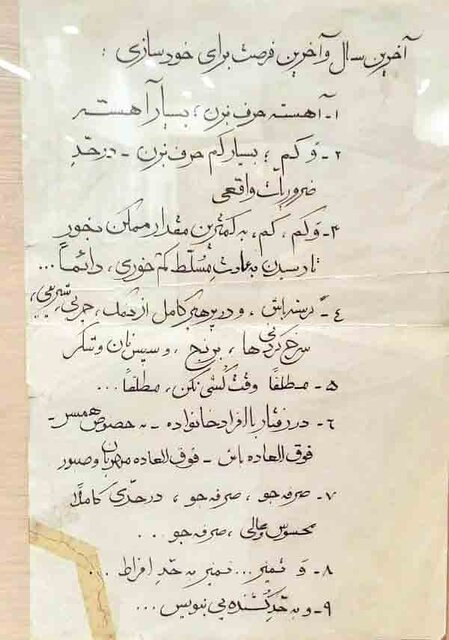 آخرین سال و آخرین فرصت برای خودسازی :
۱- آهسته حرف بزن ؛ بسیار آهسته
۲- و کم ؛ بسیار کم حرف بزن - در حدِ
ضروریات واقعی
۳- و کم ، کم ، به کمترین مقدار ممکن بخور
تا رسیدن به عادتِ مُسلّطِ کم خوری ، دائماً...
٤- گرسنه باش ، و در پرهیز کامل از نمک ، چربی ،
سرخ کردنی ها ، برنج ، و سپس نان و شکر
۵- مطلقا وقت کُشی نکن ، مطلقا...
۶- در رفتار با افراد خانواده - به خصوص همسر -
فوق العاده باش - فوق العاده مهربان و صبور
۷- صرفه جو ، صرفه جو ، در حدّی کاملاً
محسوس و عالی ، صرفه جو . .
۸- و تمیز... تمیز به حدِ افراط ...
۹- و به حدِ کُشنده یی بنویس ...